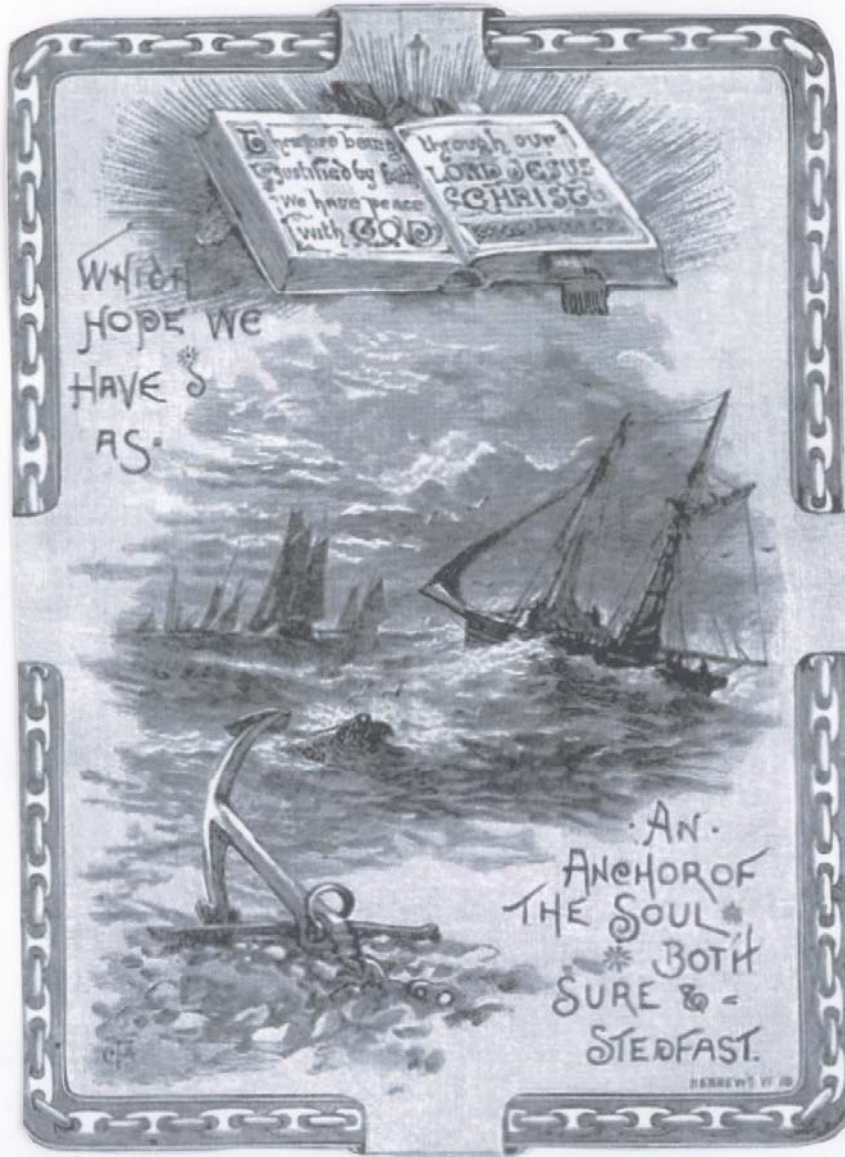 Therefore being
justified by faith
we have peace
with GOD
through our
LORD JESUS
CHRIST
WHICH
HOPE WE
HAVE
AS.
.AN.
ANCHOR OF
THE SOUL
BOTH
SURE & -
STEDFAST.
HEBREWS VI